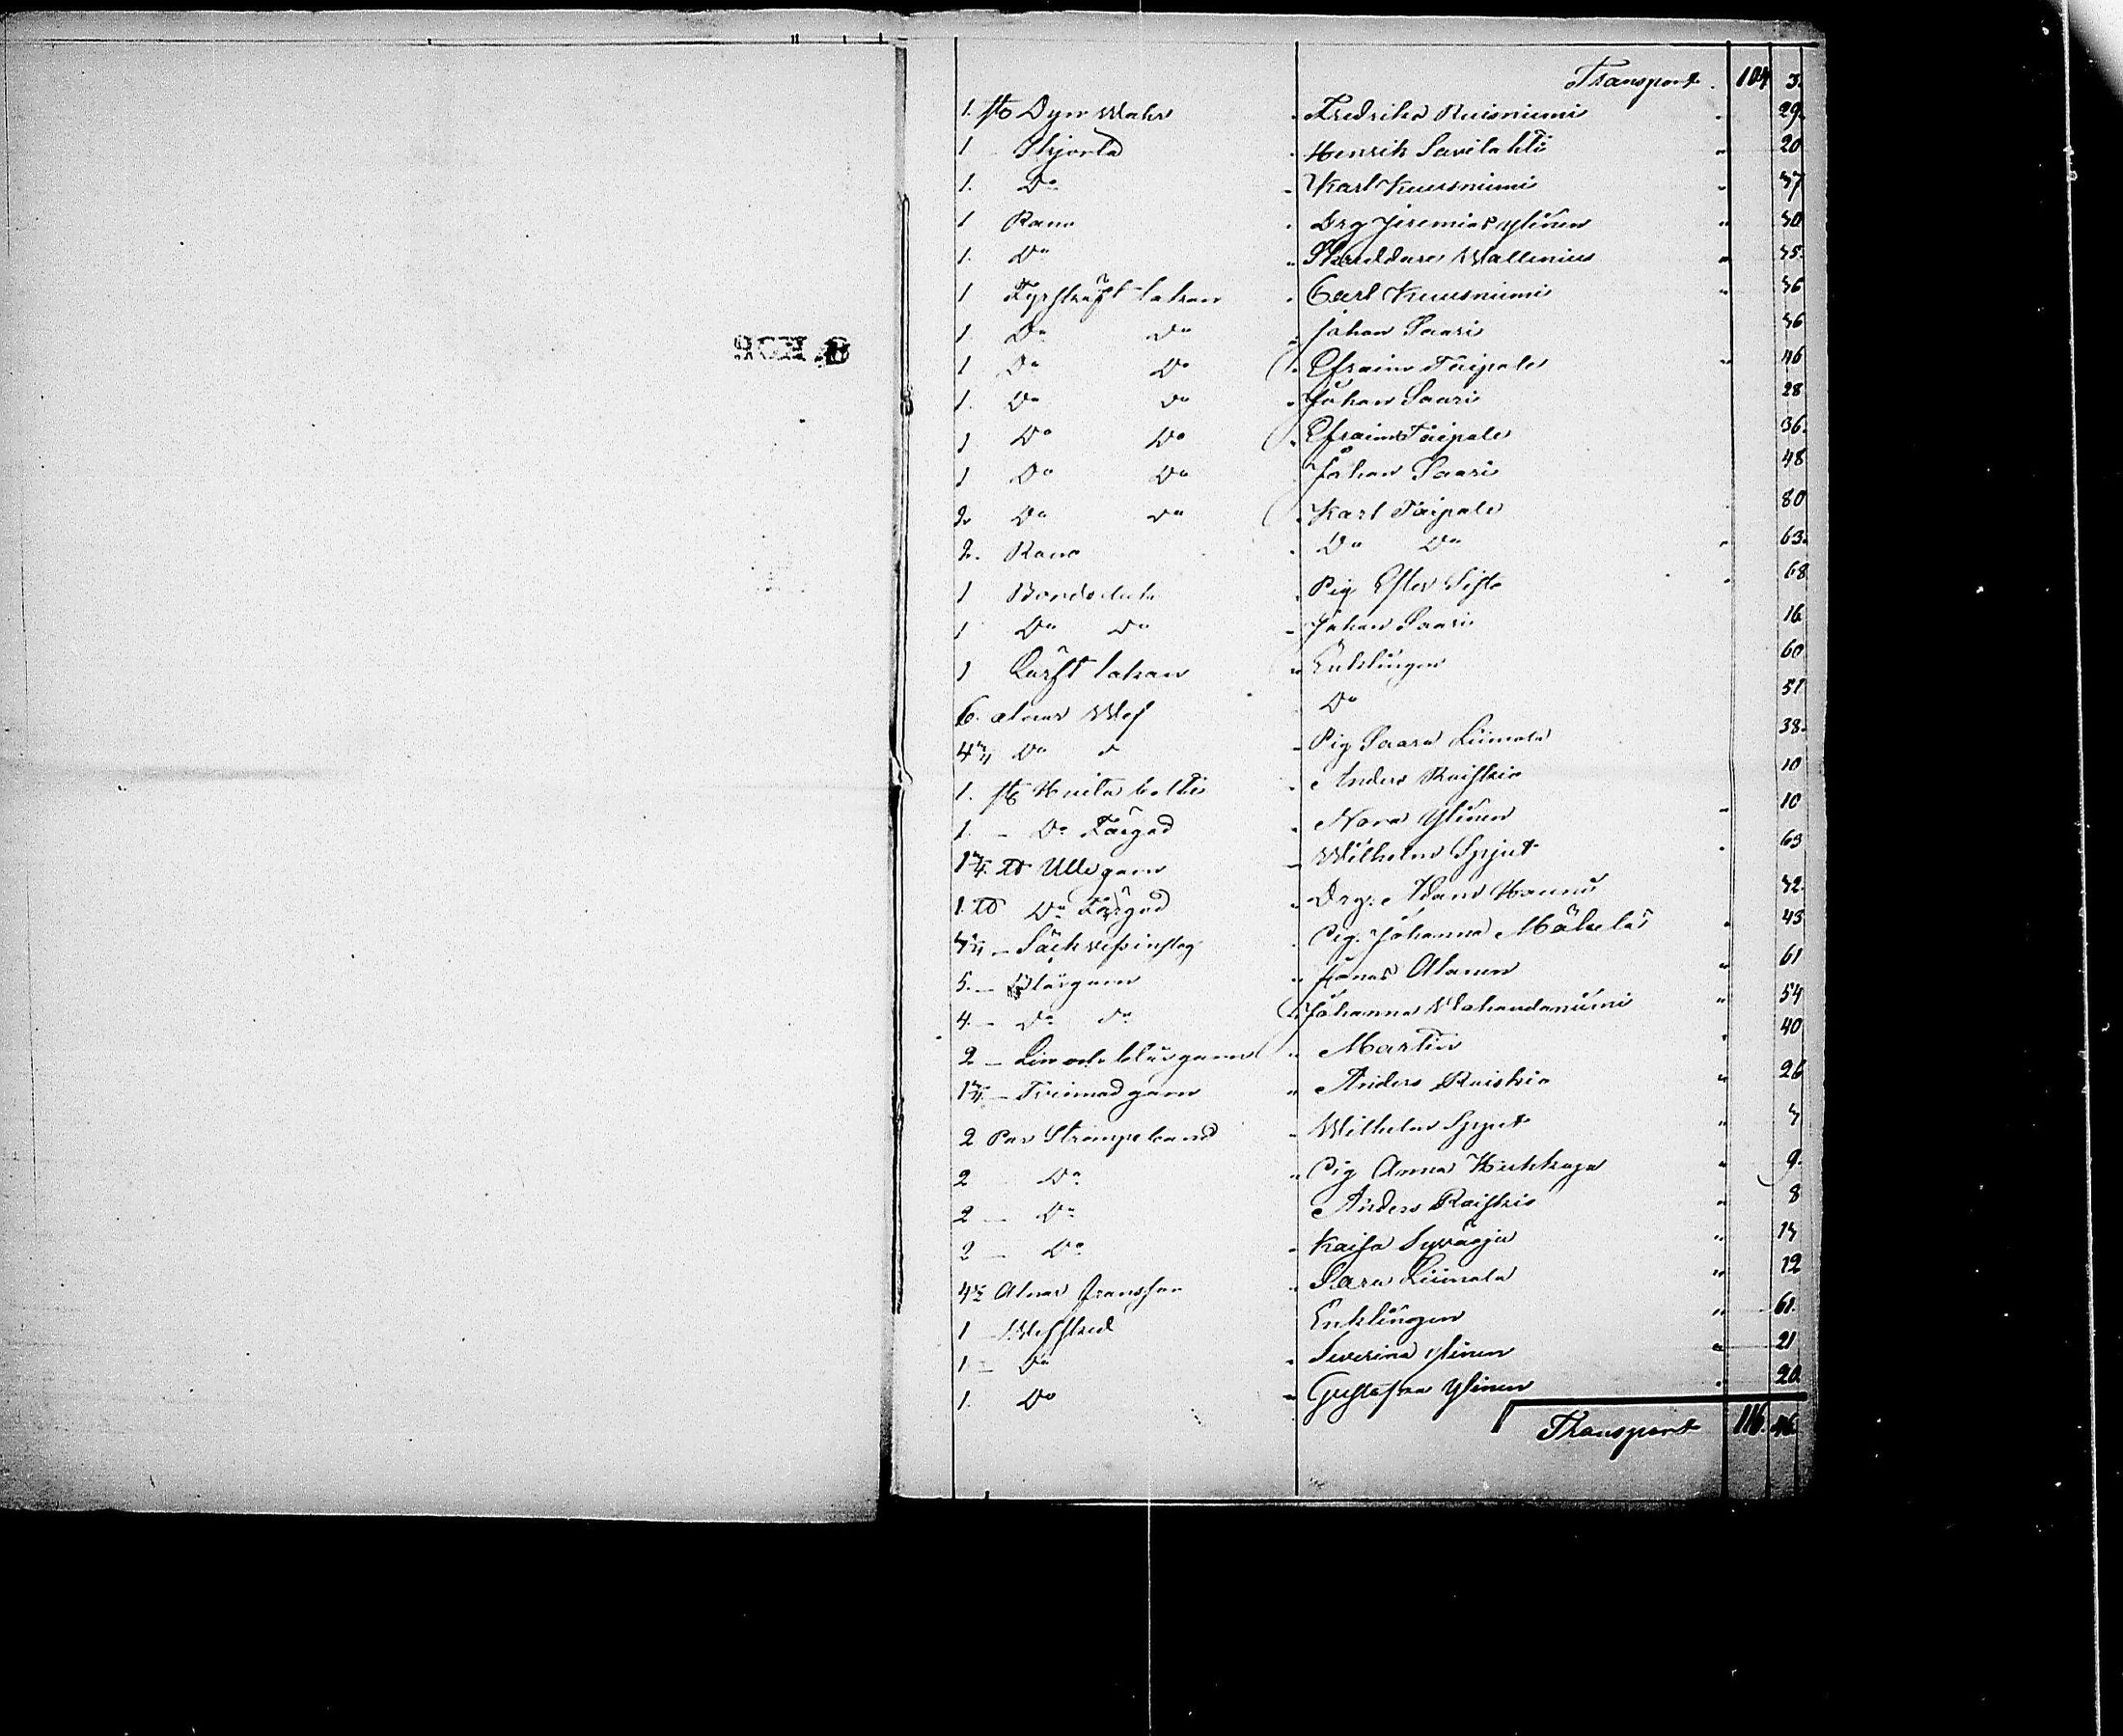 Transport . 104 3.
1. st Dynwahr . Fredrika Ruisniemi . 29.
1 Skjorta . Henrik Savilahti " 20
1. Do . Karl Kuusniemi " 37
1 Rana . Drg Jeremias Ylinen " 30
1. Do " Skreddare Wallenius " 35.
1 Fyrskäft lakan . Carl Kuusniemi " 36
1 Do Do " Johan Saari 36
1 Do Do " Efraim Taipale " 46
1. Do Do " Johan Saari 28
1 Do Do " Efraim Taipale 36.
1 Do Do Johan Saari 48
2 Do Do . Karl Taipale 80
2. Rana . Do Do " 63.
1 Bordsduk . Pig. Ester Sifte " 68
1 Do Do " Johan Saari 16
1 Lärft lakan " Enklingen 60
6. alnar Wef Do 51
4 Do " Pig Saara Liimala 38.
1. st Hvita . Anders Raiskio 10
1. – Do Färgad . Nora Ylinen " 10
1 1/4. ℔ Ullegarn " Wilhelm Spjut . 63
1. ℔ Do Färgad . Drg. Adam Hannu 32.
Säckvefsinslag . Pig. Johanna Mäkelä " 43
5. – Blårgarn " Jonas Alanen " 61
4. – Do Do " Johanna Wahaudaniemi " 54
2 – Lin och blårgarn " Martin " 40
– Tvinnadgarn " Anders Raiskio " 26
2 Par Strumpeband " Wilhelm Spjut " 7
2 Do " Pig Anna Kukkoja " 9.
2 – Do Anders Raiskio " 8
2 – Do " Kaisa Syväoja " 13
4 1/2 Alnar fransar " Sara Liimala " 12
1 – Wefsked Enklingen " 61.
1 – Do " Severina Ylinen " 21
1. Do " Gustafva Ylinen . 20
Transport 116. 46.